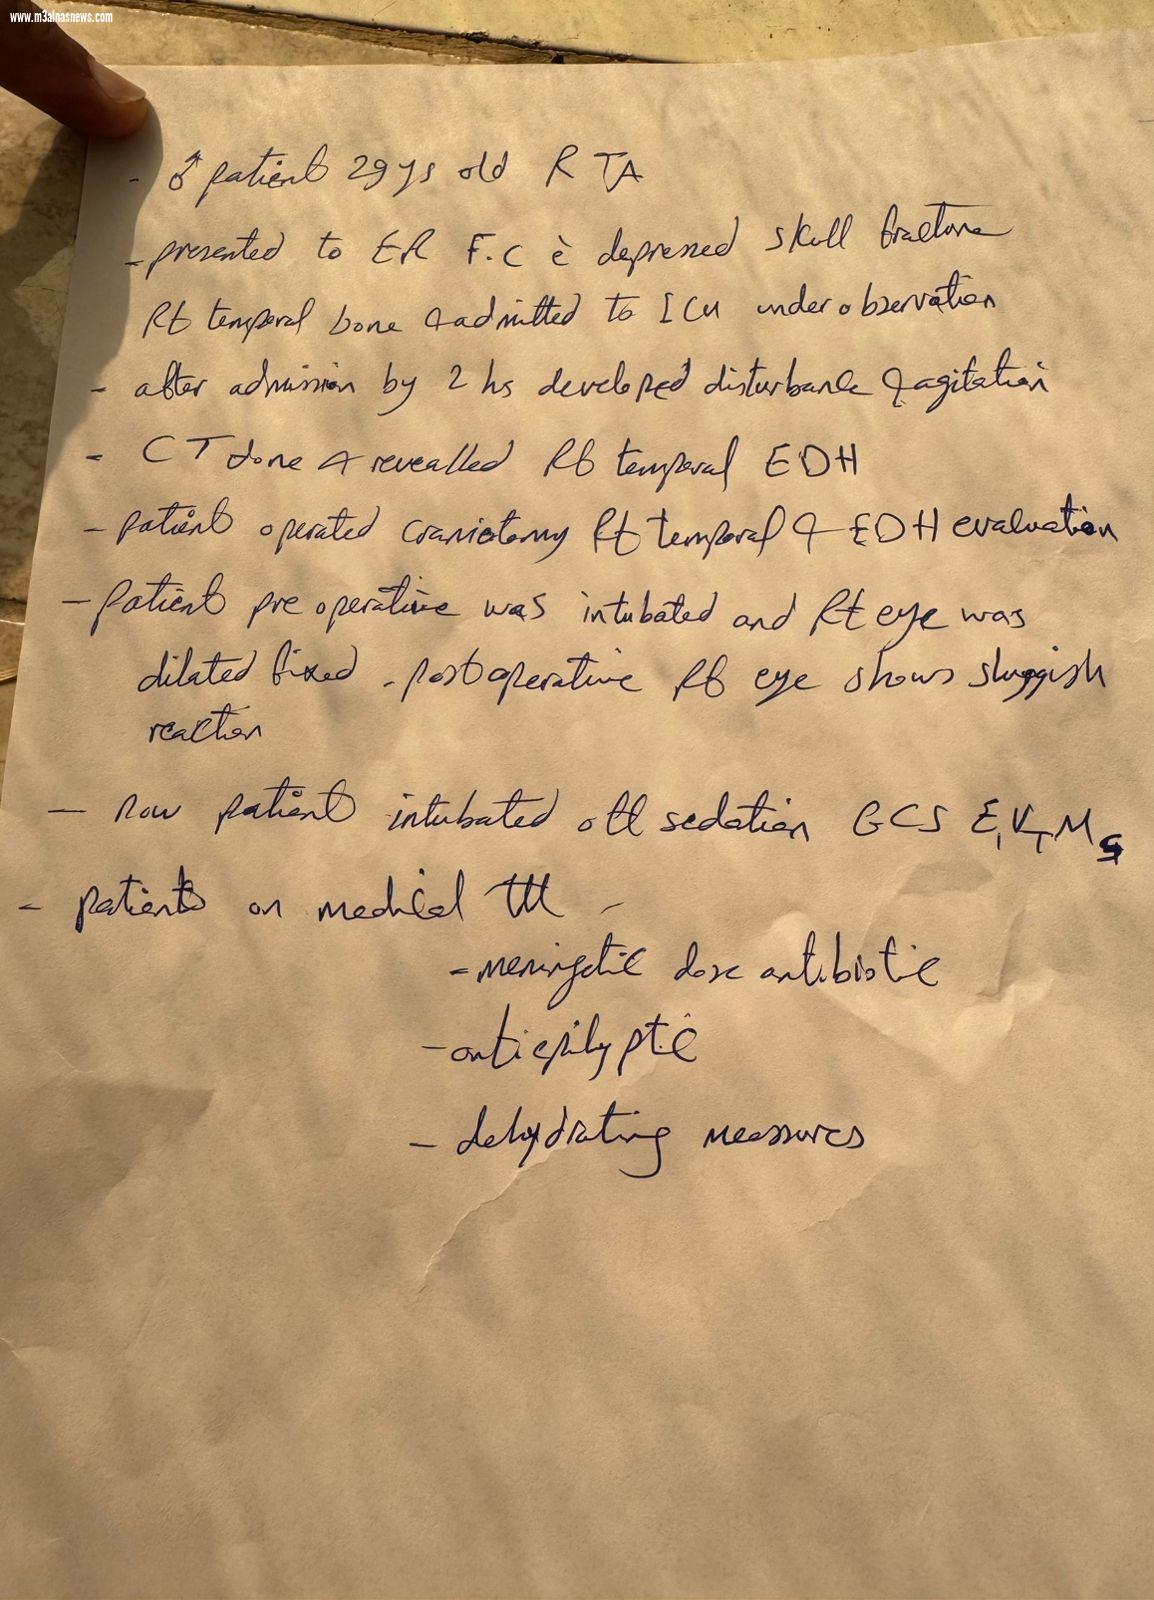 www.m3alnasnews.com
- ♂ patient 29 ys old RTA
- presented to ER F.C c̄ depressed skull fracture
Rt temporal bone & admitted to ICU under observation
- after admission by 2 hs developed disturbance & agitation
- CT done & revealled Rt temporal EDH
- patient operated craniotomy Rt temporal & EDH evaluation
- patient pre operative was intubated and Rt eye was
dilated fixed . post operative Rt eye shows sluggish
reaction
- now patient intubated off sedation GCS E1 VT M5
- patients on medical ttt -
- meningetic dose antibiotic
- antiepilyptic
- dehydrating measures